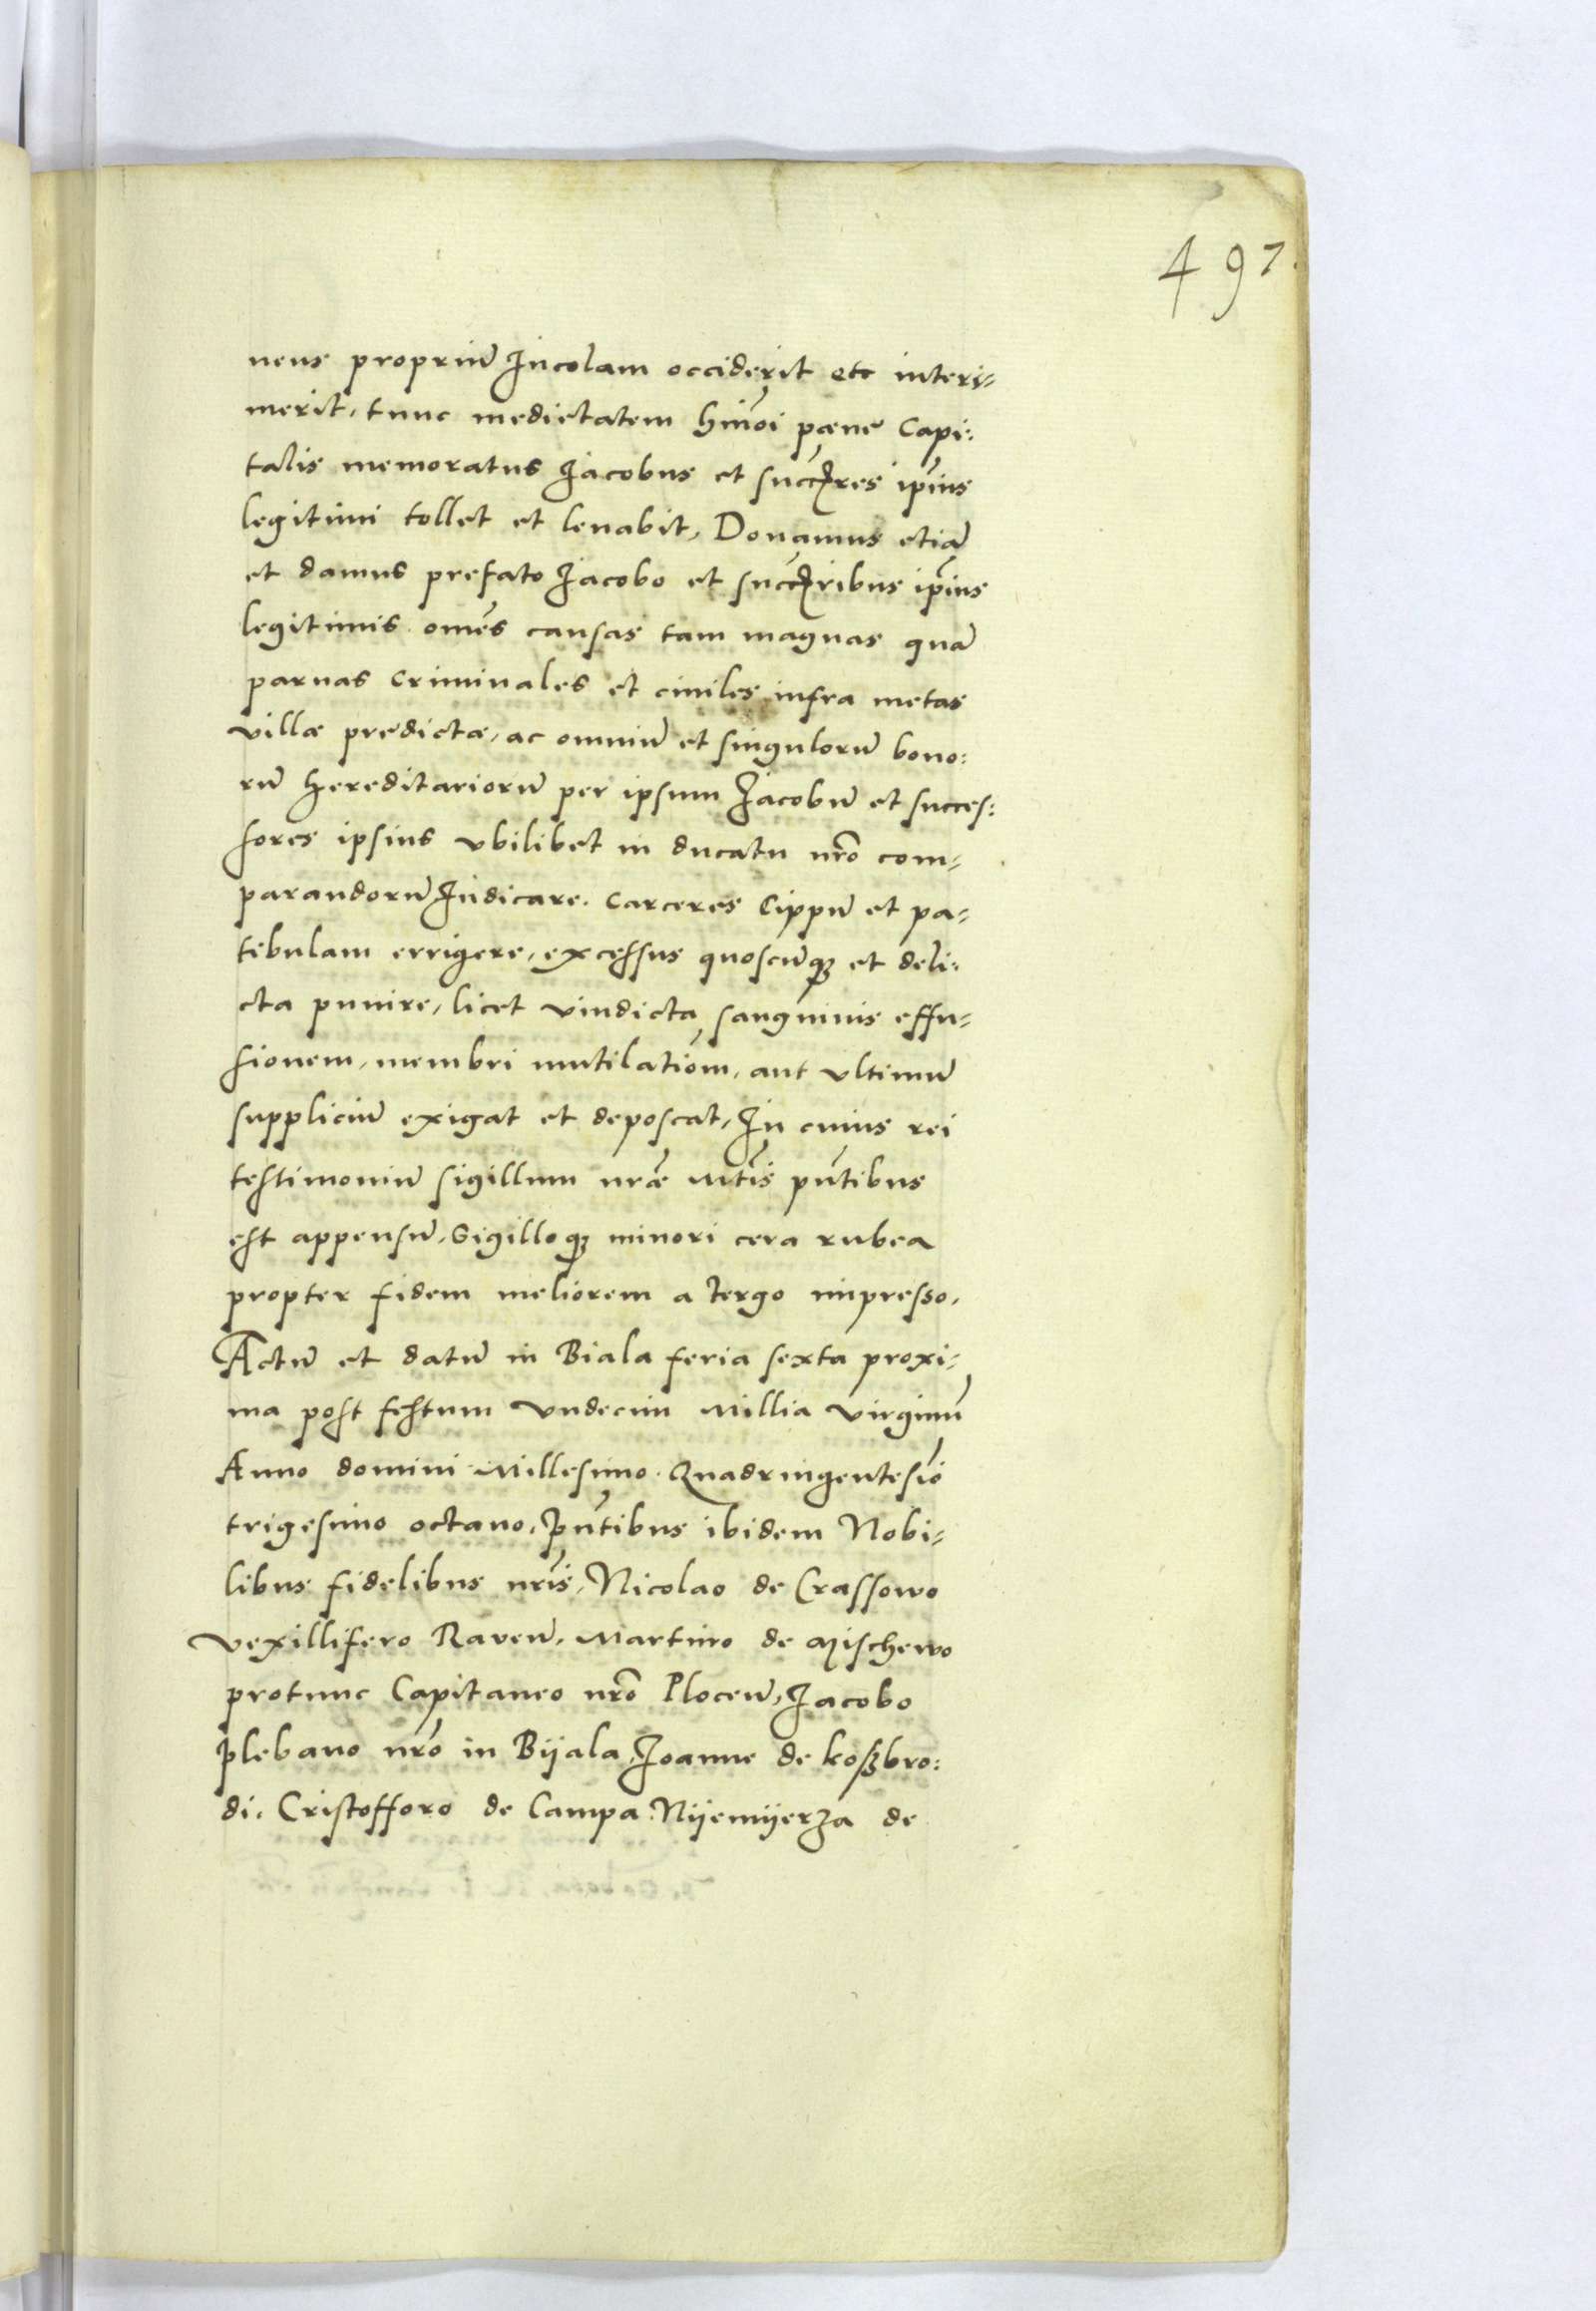 497.
neus propriū Incolam occiderit etc interi-
merit, tunc medietatem hm̄oi pæne Capi:
talis memoratus Jacobus et succ̄res ip̄ius
legitimi tollet et leuabit, Donamus etiā
et damus prefato Jacobo et succ̄ribus ip̄ius
legitimis om̄es causas tam magnas quā
paruas Criminales et ciuiles infra metas
villæ predictæ, ac omniū et singulorū bono:
rū hereditariorū per ipsum Jacobū et succes:
sores ipsius vbilibet in ducatu nr̄o com-
parandorū Iudicare. Carceres Cippū et pa-
tibulam errigere, excessus quoscūq3 et deli:
cta punire, licet vindicta sanguinis effu-
sionem, membri mutilatiōm, aut vltimū
suppliciū exigat et deposcat, In cuius rei
testimoniū sigillum nr̄æ Mt̄is pn̄tibus
est appensū, Sigilloq3 minori cera rubea
propter fidem meliorem a tergo impresso.
Actū et datū in Biala feria sexta proxi-
ma post festum Vndecim Millia Virginū
Anno domini Millesimo Quadringentesīo
trigesimo octauo, Pn̄tibus ibidem Nobi-
libus fidelibus nr̄is, Nicolao de Crassowo
Vexillifero Raueñ, Martino de Mischewo
protunc Capitaneo nr̄o Ploceñ, Jacobo
plebano nr̄o in Bijala, Joanne de koßbro:
di. Cristofforo de Campa Nijemijerza de